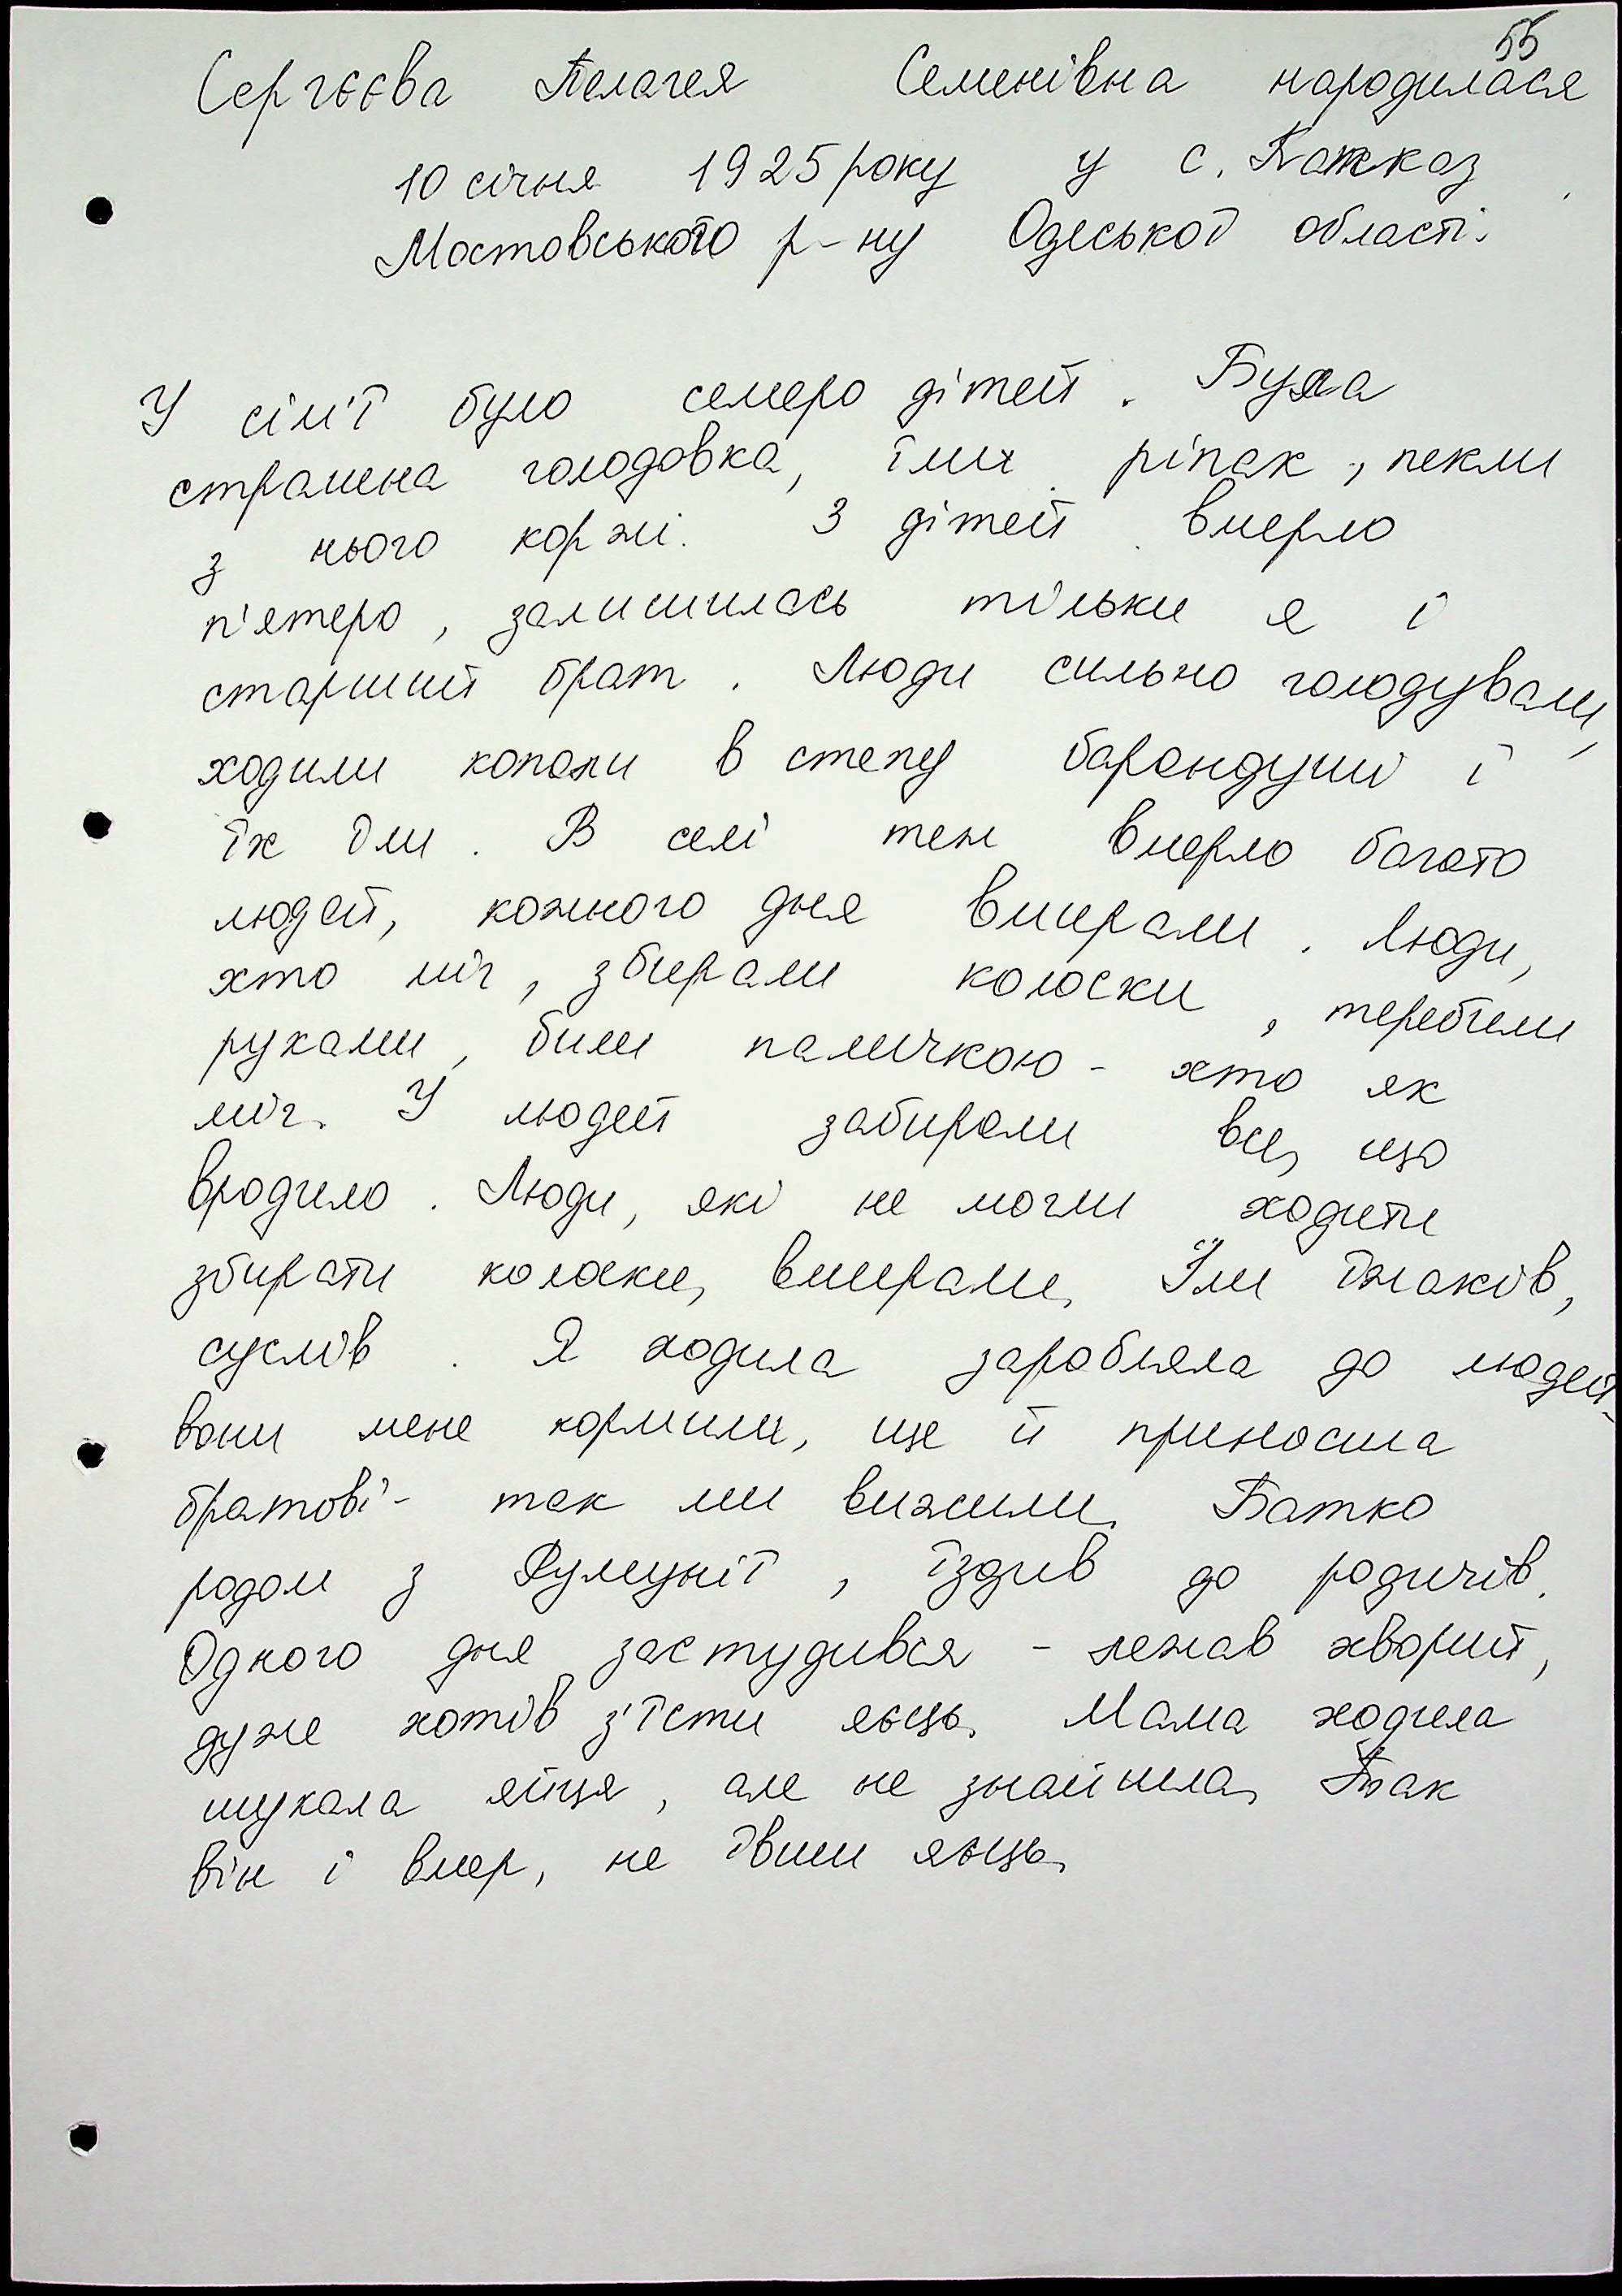 55
Сергєєва Пелагея Семенівна народилася
10 січня 1925 року у с. Кавказ
Мостовського р-ну Одеської області.
У сім'ї було семеро дітей. Була
страшена голодовка, їли ріпак, пекли
з нього коржі. З дітей вмерло
п'ятеро, залишилась тільки я і
старший брат. Люди сильно голодували,
ходили копали в степу барандуші і
їх їли. В селі теж вмерло багато
людей, кожного дня вмирали. Люди,
хто міг, збирали колоски, теребили
руками, били паличкою - хто як
міг. У людей забирали все, що
вродило. Люди, які не могли ходити
збирати колоски, вмирали. Їли їжаків,
суслів. Я ходила заробляла до людей -
вони мене кормили, ще й приносила
братові - так ми вижили. Батко
родом з Румунії, їздив до родичів.
Одного дня застудився - лежав хворий,
дуже хотів з'їсти яєць. Мама ходила
шукала яйця, але не знайшла. Так
він і вмер, не ївши яєць.